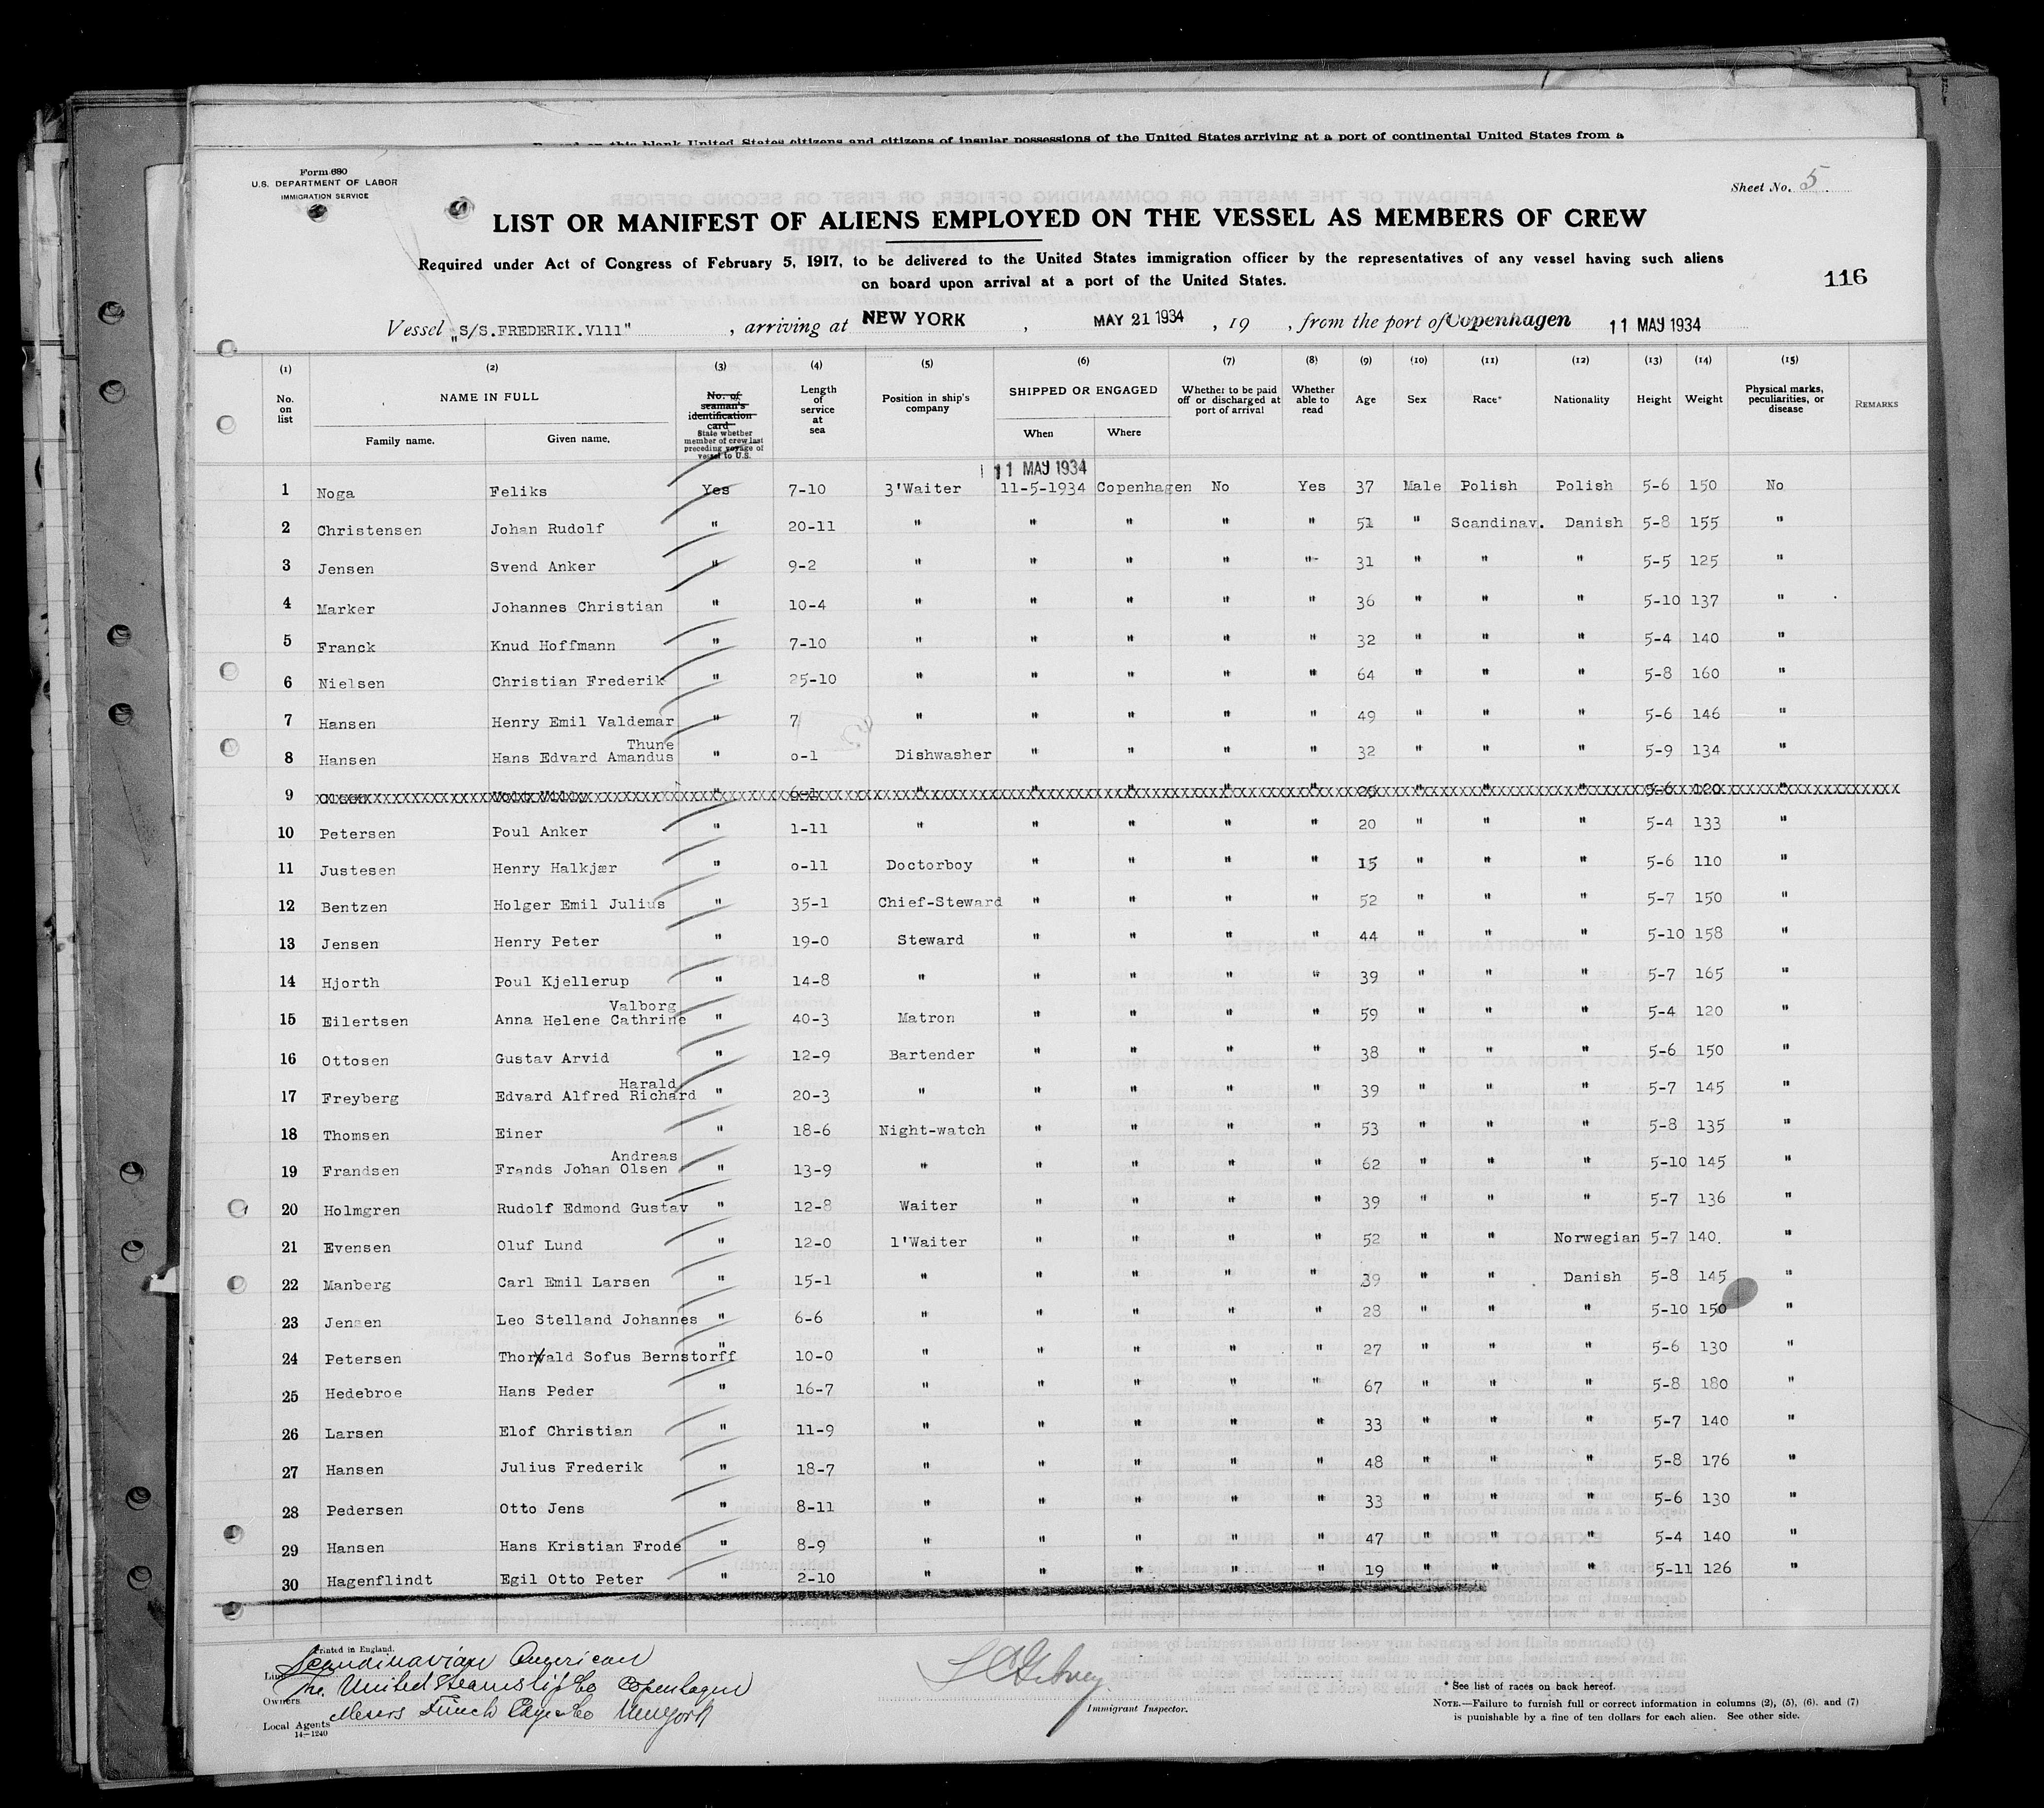 Form 680
U.S. DEPARTMENT OF LABOR
IMMIGRATION SERVICE
on this blank United States citizens and citizens of insular possessions of the United States arriving at a port of continental United States from a
Sheet No. 5
LIST OR MANIFEST OF ALIENS EMPLOYED ON THE VESSEL AS MEMBERS OF CREW
Required under Act of Congress of February 5, 1917, to be delivered to the United States immigration officer by the representatives of any vessel having such aliens
on board upon arrival at a port of the United States.
116
Vessel „S/S.FREDERIK.V111" , arriving at NEW YORK , MAY 21 1934 , 19 , from the port of Copenhagen 11 MAY 1934
(1) (2) (3) (4) (5) (6) (7) (8) (9) (10) (11) (12) (13) (14) (15)
No. on list NAME IN FULL Family name. Given name. No. of seaman's identification card State whether member of crew last preceding voyage of vessel to U.S. Length of service at sea Position in ship's company SHIPPED OR ENGAGED When Where Whether to be paid off or discharged at port of arrival Whether able to read Age Sex Race* Nationality Height Weight Physical marks, peculiarities, or disease REMARKS
11 MAY 1934
1 Noga Feliks Yes 7-10 3'Waiter 11-5-1934 Copenhagen No Yes 37 Male Polish Polish 5-6 150 No
2 Christensen Johan Rudolf " 20-11 " " " " " 51 " Scandinav. Danish 5-8 155 "
3 Jensen Svend Anker " 9-2 " " " " "- 31 " " " 5-5 125 "
4 Marker Johannes Christian " 10-4 " " " " " 36 " " " 5-10 137 "
5 Franck Knud Hoffmann " 7-10 " " " " " 32 " " " 5-4 140 "
6 Nielsen Christian Frederik " 25-10 " " " " " 64 " " " 5-8 160 "
7 Hansen Henry Emil Valdemar " 7 " " " " " 49 " " " 5-6 146 "
Thune
8 Hansen Hans Edvard Amandus " o-1 Dishwasher " " " " 32 " " " 5-9 134 "
9
10 Petersen Poul Anker " 1-11 " " " " " 20 " " " 5-4 133 "
11 Justesen Henry Halkjær " o-11 Doctorboy " " " " 15 " " " 5-6 110 "
12 Bentzen Holger Emil Julius " 35-1 Chief-Steward " " " " 52 " " " 5-7 150 "
13 Jensen Henry Peter " 19-0 Steward " " " " 44 " " " 5-10 158 "
14 Hjorth Poul Kjellerup " 14-8 " " " " " 39 " " " 5-7 165 "
Valborg
15 Eilertsen Anna Helene Cathrine " 40-3 Matron " " " " 59 " " " 5-4 120 "
16 Ottosen Gustav Arvid " 12-9 Bartender " " " " 38 " " " 5-6 150 "
Harald
17 Freyberg Edvard Alfred Richard " 20-3 " " " " " 39 " " " 5-7 145 "
18 Thomsen Einer " 18-6 Night-watch " " " " 53 " " " 5-8 135 "
Andreas
19 Frandsen Frands Johan Olsen " 13-9 " " " " " 62 " " " 5-10 145 "
20 Holmgren Rudolf Edmond Gustav " 12-8 Waiter " " " " 39 " " " 5-7 136 "
21 Evensen Oluf Lund " 12-0 1'Waiter " " " " 52 " " Norwegian 5-7 140. "
22 Manberg Carl Emil Larsen " 15-1 " " " " " 39 " " Danish 5-8 145 "
23 Jensen Leo Stelland Johannes " 6-6 " " " " " 28 " " " 5-10 150 "
24 Petersen Thorvald Sofus Bernstorff " 10-0 " " " " " 27 " " " 5-6 130 "
25 Hedebroe Hans Peder " 16-7 " " " " " 67 " " " 5-8 180 "
26 Larsen Elof Christian " 11-9 " " " " " 33 " " " 5-7 140 "
27 Hansen Julius Frederik " 18-7 " " " " " 48 " " " 5-8 176 "
28 Pedersen Otto Jens " 8-11 " " " " " 33 " " " 5-6 130 "
29 Hansen Hans Kristian Frode " 8-9 " " " " " 47 " " " 5-4 140 "
30 Hagenflindt Egil Otto Peter " 2-10 " " " " " 19 " " " 5-11 126 "
Printed in England.
Line Scandinavian American
Owners The United Steamship Co Copenhagen
Local Agents Messrs Funch Edye & Co New York
14-1240
Immigrant Inspector.
* See list of races on back hereof.
NOTE.—Failure to furnish full or correct information in columns (2), (5), (6), and (7)
is punishable by a fine of ten dollars for each alien. See other side.